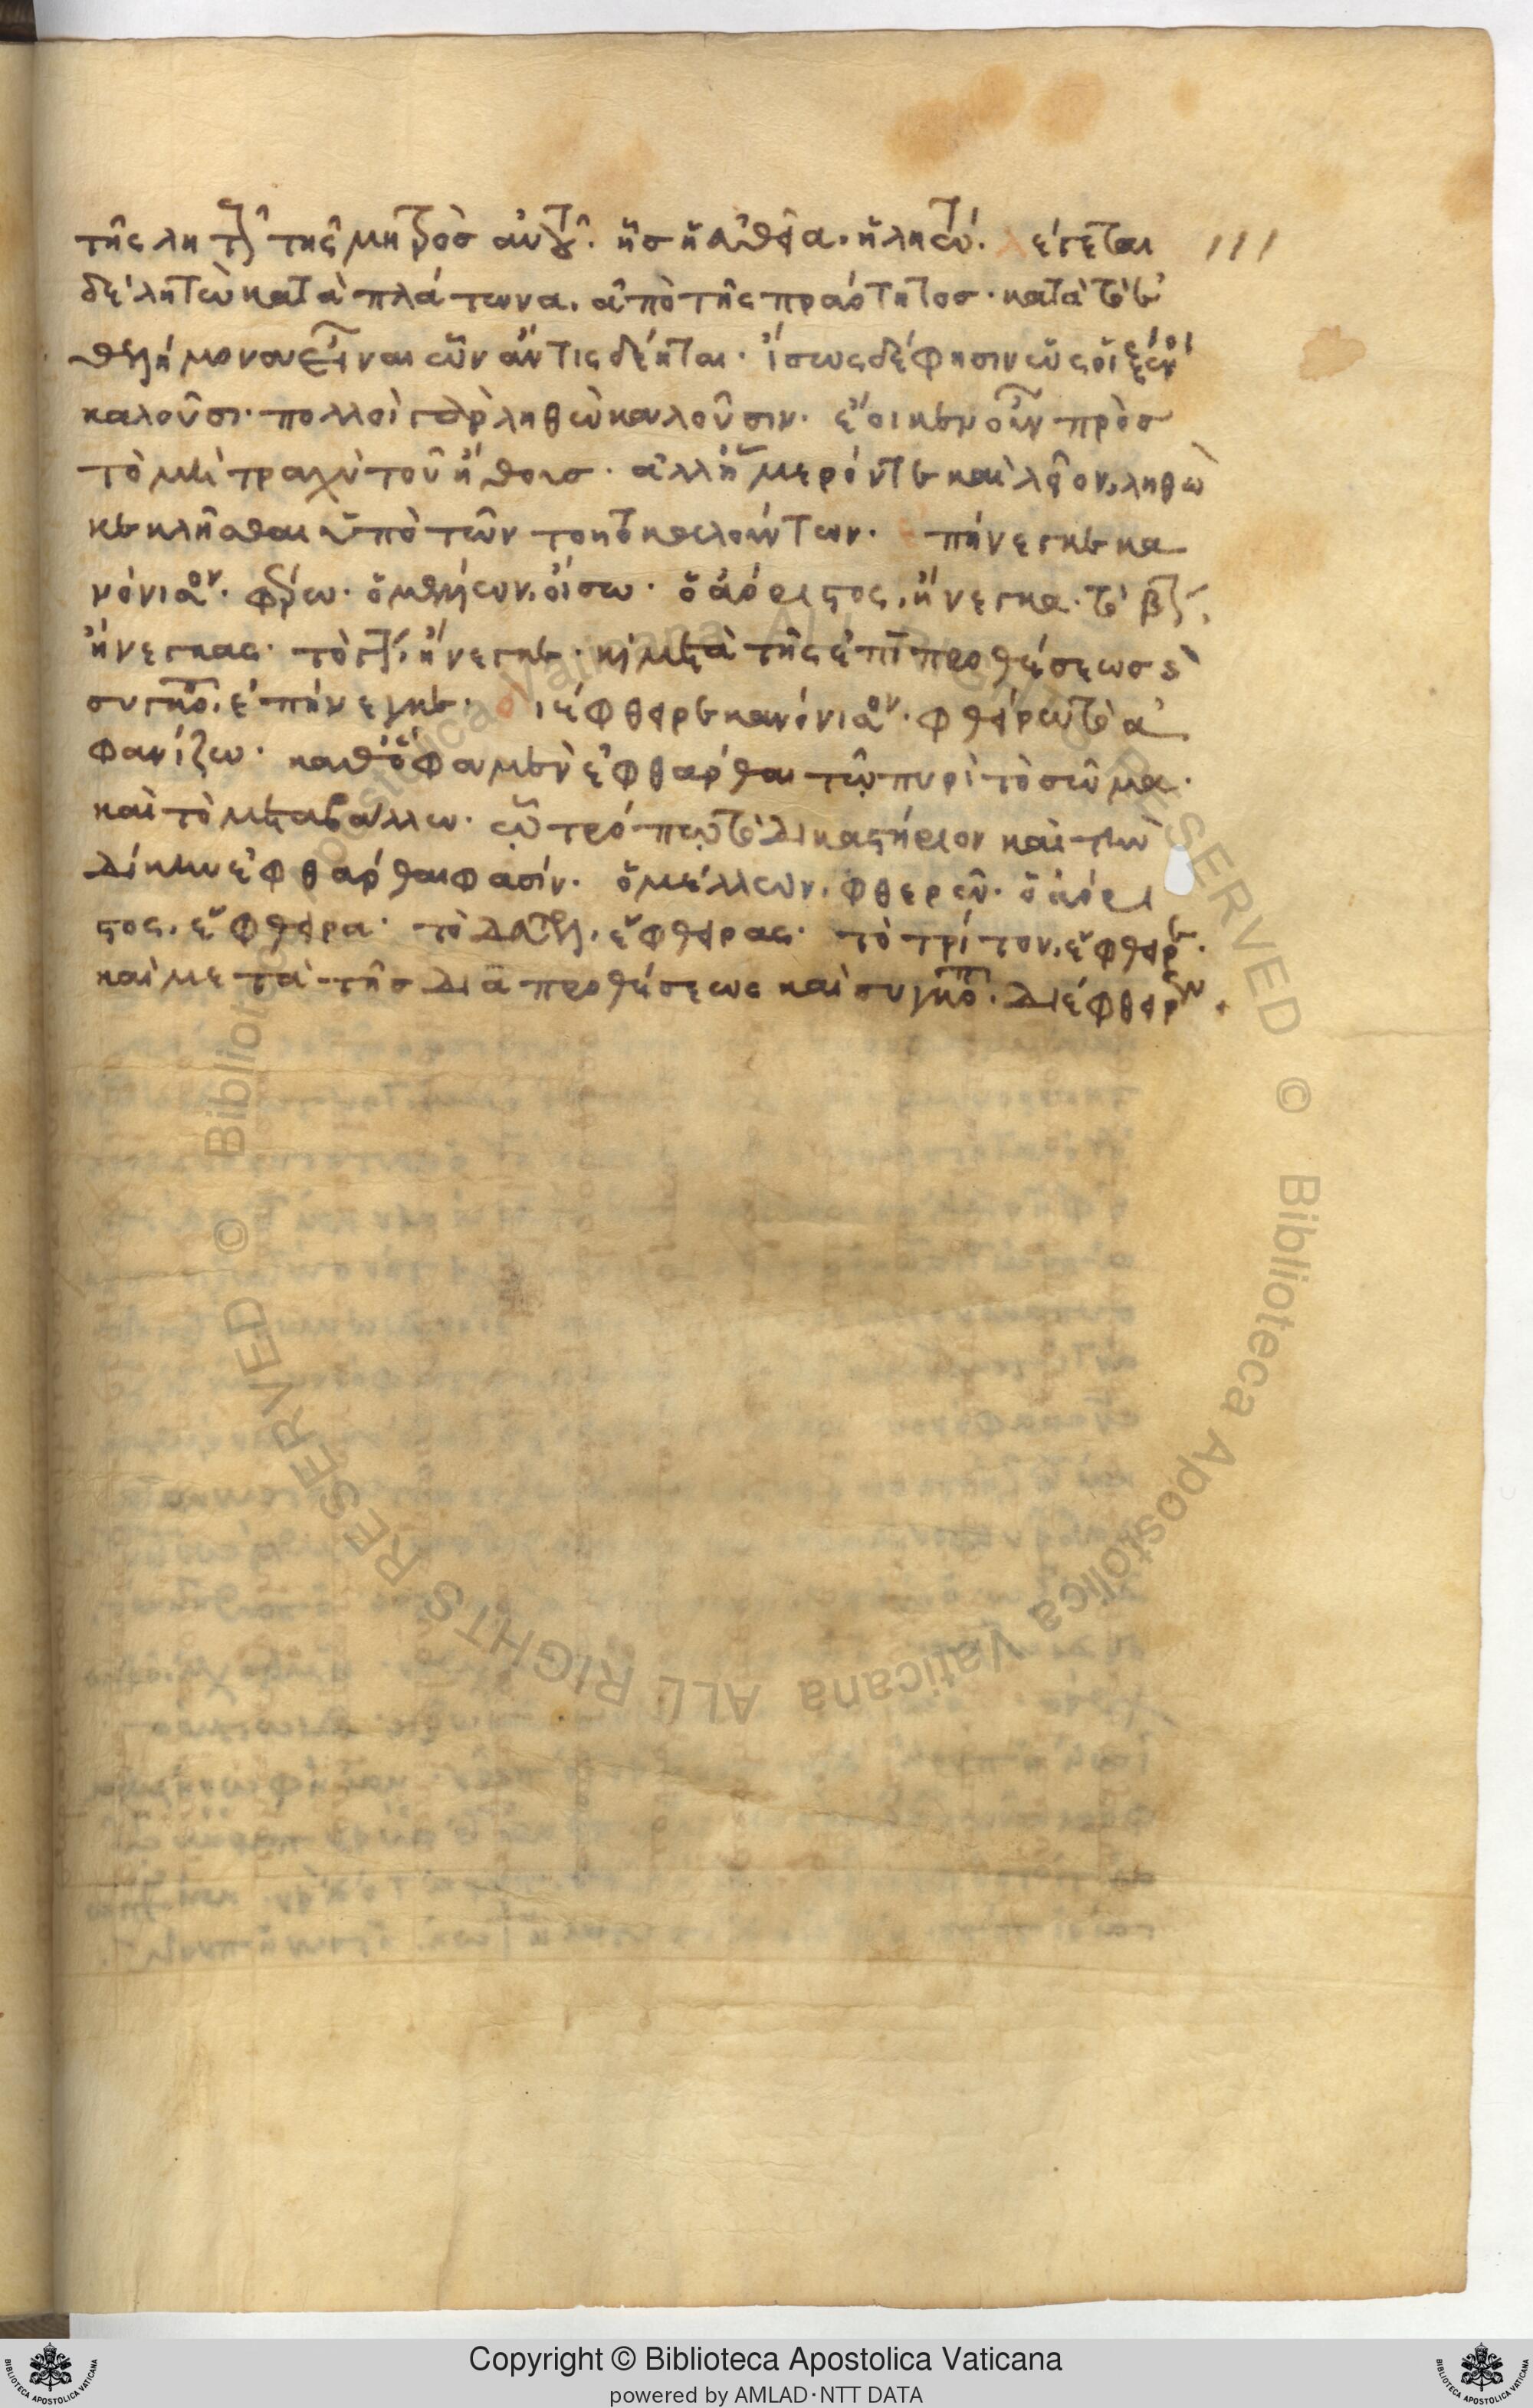 τῆς λητ τῆς μητρὸσ αὐτοῦ. ἧσ ἡ εὐθεῖα. ἡ λητώ. λέγεται 111
δὲ λητὼ κατὰ πλάτωνα. ἀπὸ τῆς πραότητοσ. κατὰ τὸ ἐ
θελήμονα εἶναι ὧν ἄν τις δέηται. ἴσως δέ φησιν ὡς οἱ ξένοι
καλοῦσι. πολλοὶ γὰρ ληθὼ καλοῦσιν. ἔοικεν οὖν πρὸσ
τὸ μὴ τραχὺ τοῦ ἤθουσ. ἀλλ' ἥμερόν τε καὶ λεῖον. ληθὼ
κεκλῆσθαι ὑπὸ τῶν τοῦτο καλούντων. πήνεγκε κα
νόνιον. φέρω. ὁ μέλλων. οἴσω. ὁ ἀόριστος. ἤνεγκα. τὸ β
ἤνεγκας. τὸ γ. ἤνεγκε. κὶ μετὰ τῆς ἐπὶ προθέσεωσ
συγκο. ἐπήνεγκε. διέφθειρε κανόνιον. φθείρω τὸ ἀ
φανίζω. καθ' ὃ φαμὲν ἐφθάρθαι τῷ πυρὶ τὸ σῶμα.
καὶ τὸ μεταβάλλω. ᾧ τρόπῳ τὸ δικαστήριον καὶ τὴν
δίκην ἐφθάρθαι φασίν. ὁ μέλλων. φθερῶ. ὁ ἀόρι
στος. ἔφθειρα. τὸ δεύτερον. ἔφθειρας. τὸ τρίτον. ἔφθειρε.
καὶ μετὰ τῆσ διὰ προθέσεως καὶ συγκοπ. διέφθειρεν.
Copyright © Biblioteca Apostolica Vaticana
powered by AMLAD·NTT DATA